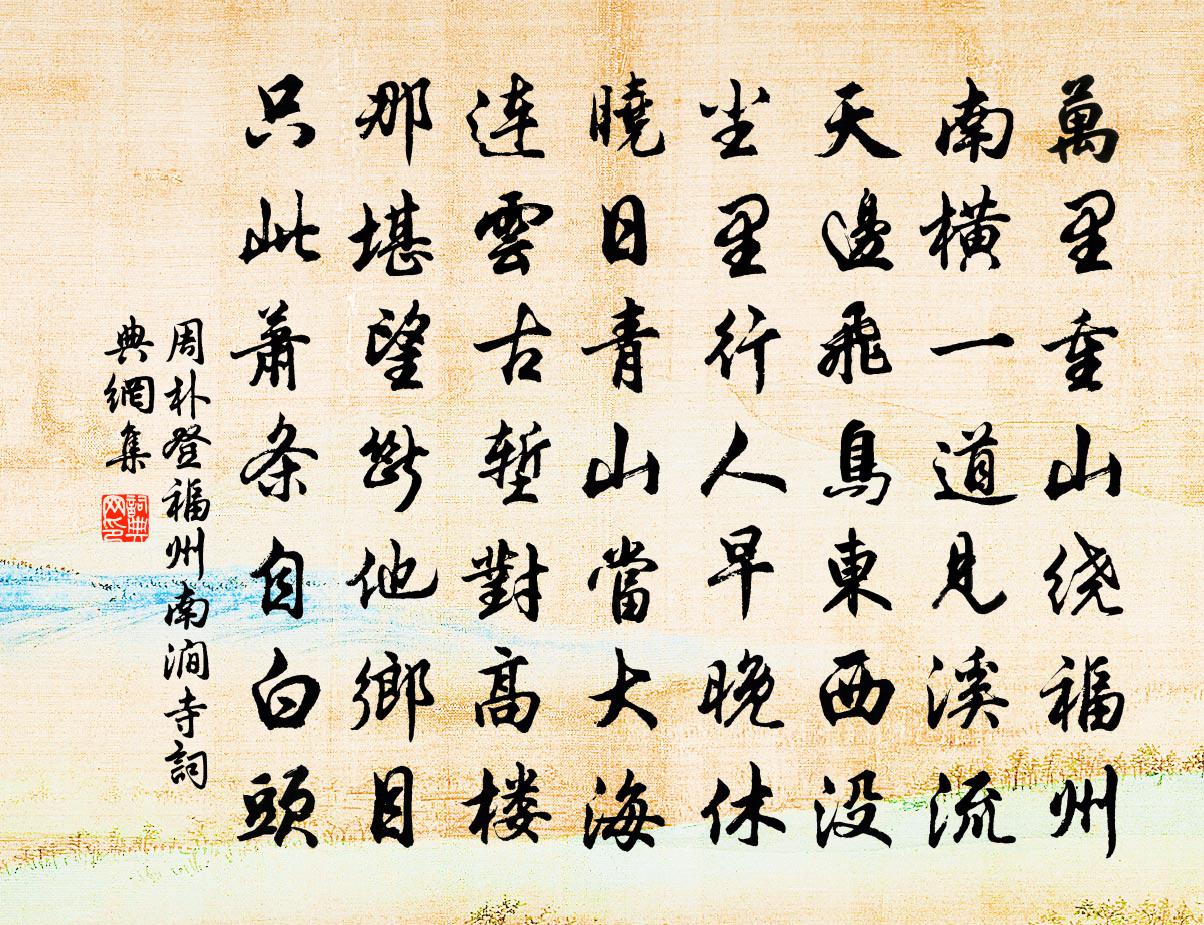 萬里重山绕福州
南橫一道見溪流
天邊飛鳥東西没
尘里行人早晚休
曉日青山當大海
連雲古塹對高楼
那堪望斷他鄉目
只此蕭条自白頭
周朴登福州南澗寺詞
典網集
詞典
网印